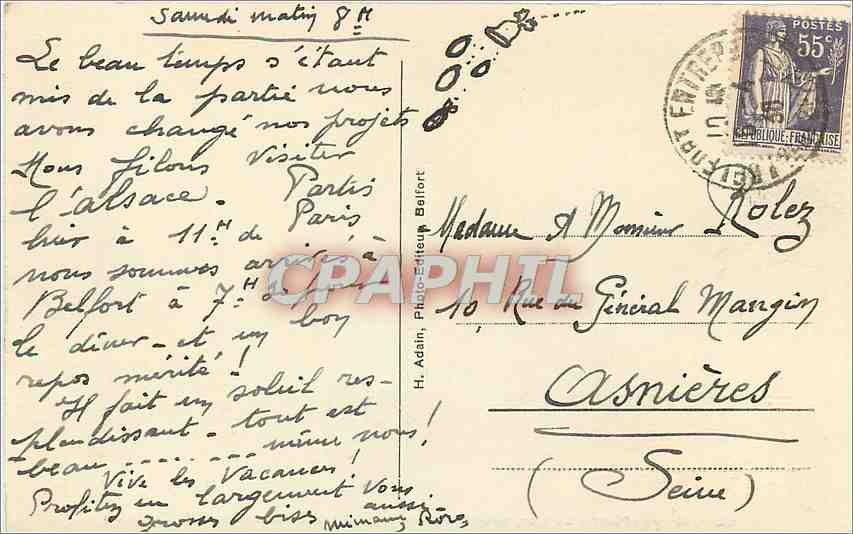 Samedi matin 8H
Le beau temps s'étant
mis de la partie nous
avons changé nos projets
Nous filons visiter
l'alsace. Partis
hier à 11H de Paris
nous sommes arrivés à
Belfort à 7H pour
le dîner - et un bon
repos mérité!
Il fait un soleil res-
plendissant - tout est
beau ........ même nous!
Vive les Vacances!
Profitez en largement vous
aussi.
grosses bises
H. Adain, Photo-Editeur, Belfort
POSTES
55c
REPUBLIQUE-FRANÇAISE
BELFORT ENTREPÔT
Madame & Monsieur Rolez
10, Rue du Général Mangin
Asnières
(Seine)
CPAPHIL